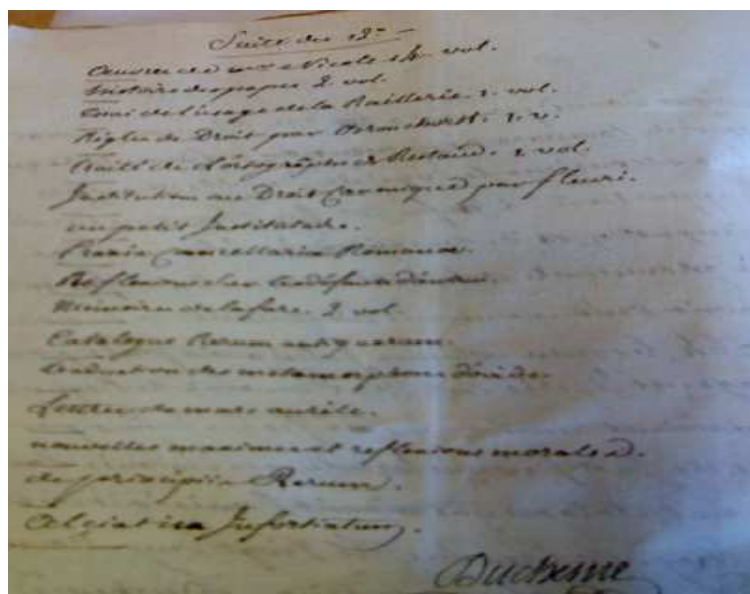 Suite du 12e
Oeuvres de mr Nicole 14 vol.
histoire des papes 2 vol.
de l'usage de la Raillerie. 1. vol.
Regles de Droit par 1. v.
Traité de L'ortographe de Restaud. 1 vol.
Institution au Droit Canonique par fleuri.
un petit Institutaire.
Praxis Cancellaria Romanae.
Reflexions sur
Memoires de la fare. 2 vol.
Catalogus Rerum antiquarum.
traduction des metamorphoses d'ovide.
Lettres de marc aurele.
nouvelles maximes et reflexions morales.
de principiis Rerum.
Alciat in Infortiatum.
Duchesne